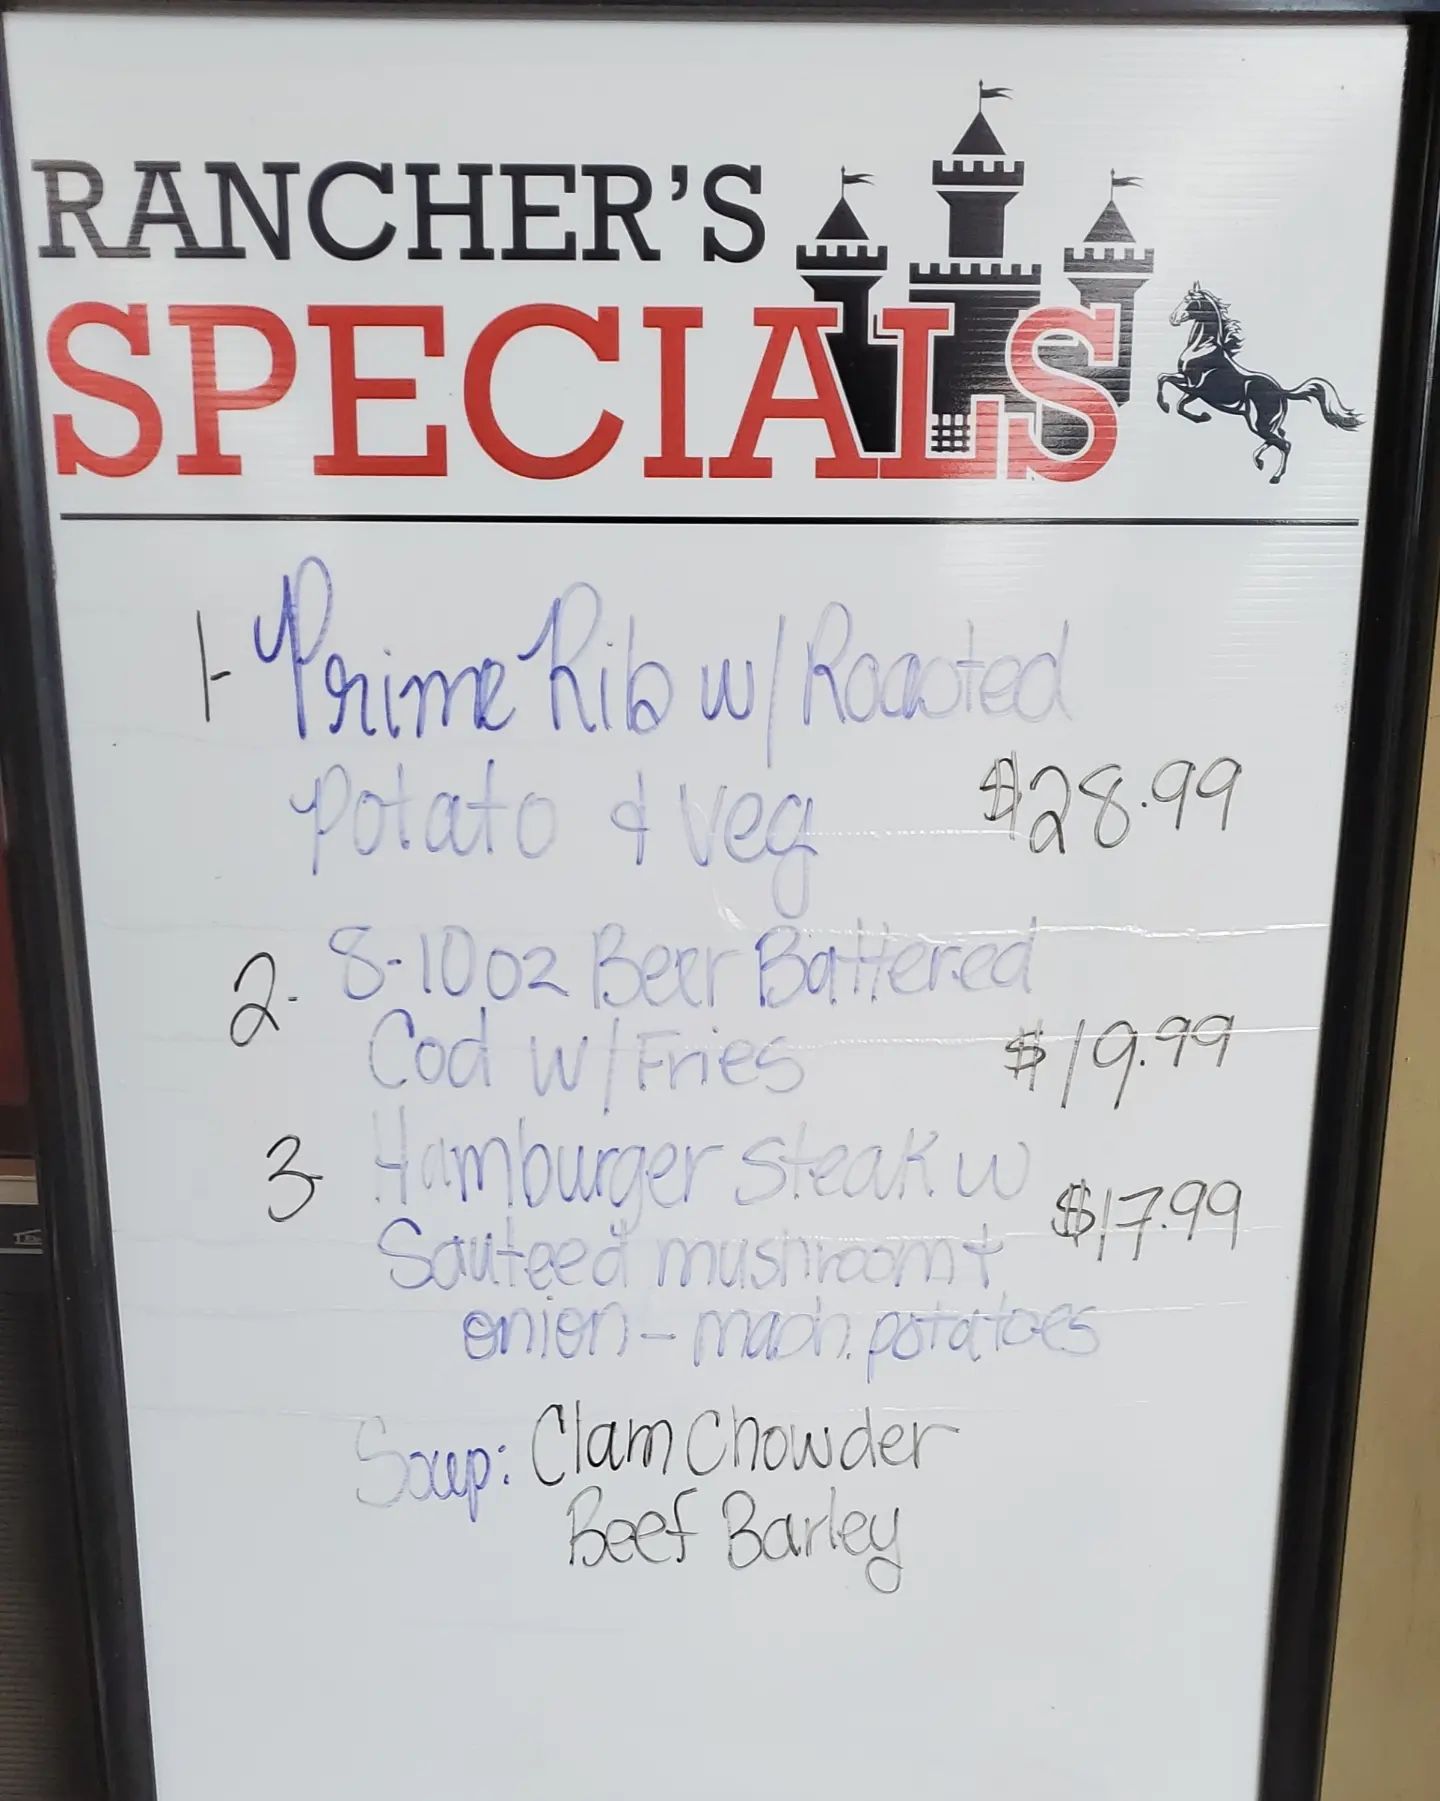 RANCHER'S
SPECIALS
1- Prime Rib w/ Roasted
Potato & Veg $28.99
2- 8-10oz Beer Battered
Cod w/ Fries $19.99
3- Hamburger Steak w
Sauteed mushroom &
onion - mash. potatoes $17.99
Soup: Clam Chowder
Beef Barley